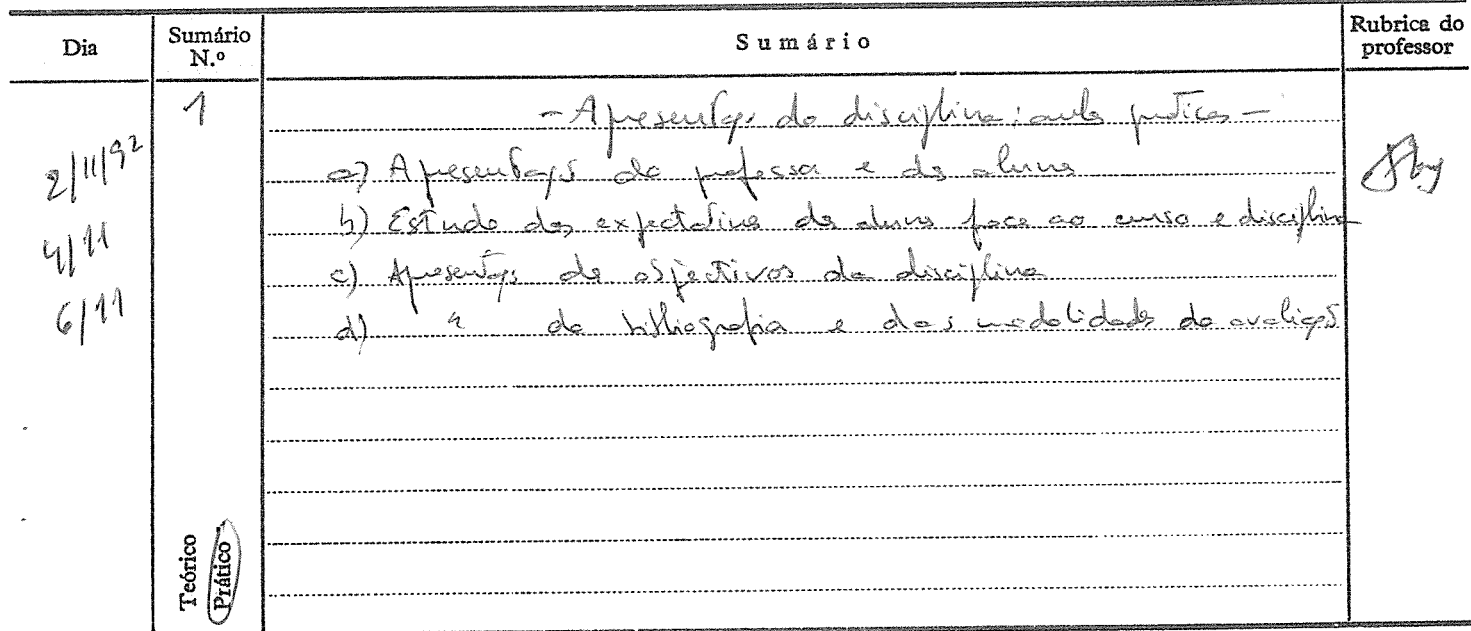 Dia
Sumário N.º
Sumário
Rubrica do professor
2/11/92
4/11
6/11
1
- Apresentação da disciplina: aula prática -
a) Apresentação do professor e dos alunos
b) Estudo das expectativas dos alunos face ao curso e disciplina
c) Apresentação dos objectivos da disciplina
d) " da bibliografia e das modalidades de avaliação
Teórico
Prático